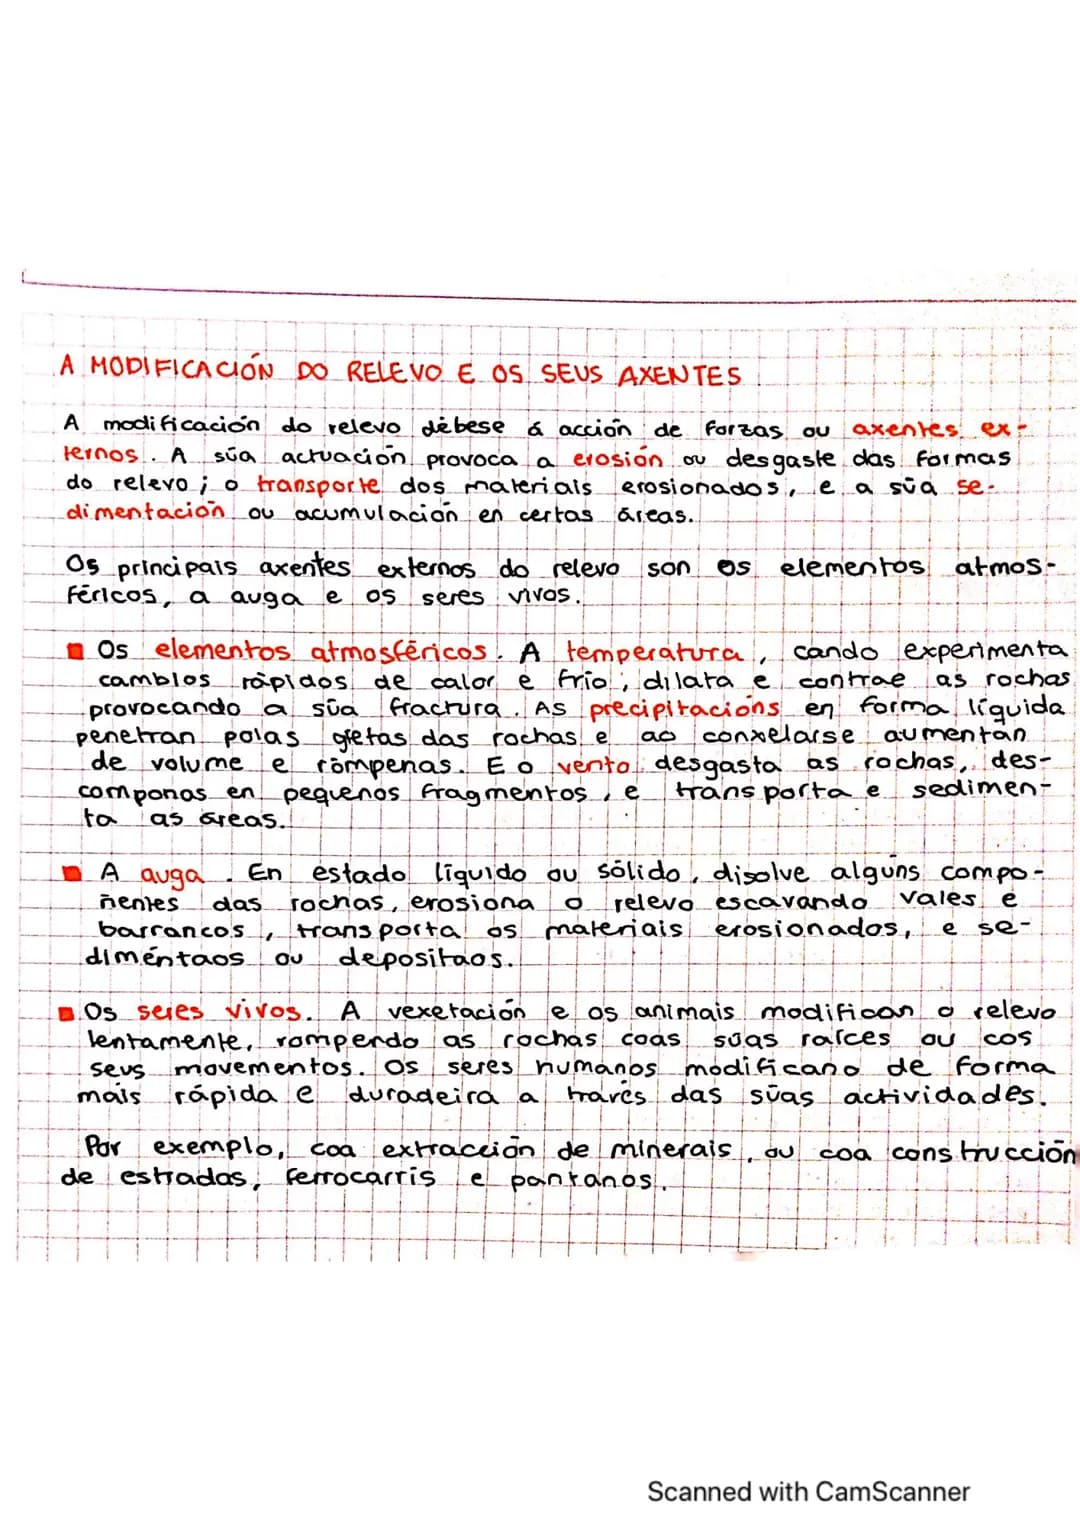 A MODIFICACIÓN DO RELEVO E OS SEUS AXENTES
A modificación do relevo débese á acción de forzas ou axentes ex-
ternos. A súa actuación provoca a erosión ou desgaste das formas
do relevo; o transporte dos materiais erosionados, e a súa se-
dimentación ou acumulación en certas áreas.
Os principais axentes externos do relevo son os elementos atmos-
féricos, a auga e os seres vivos.
Os elementos atmosféricos. A temperatura, cando experimenta
cambios rápidos de calor e frío, dilata e contrae as rochas
provocando a súa fractura. As precipitacións en forma líquida
penetran polas gretas das rochas e ao conxelarse aumentan
de volume e rómpenas. E o vento desgasta as rochas, des-
componas en pequenos fragmentos, e transporta e sedimen-
ta as áreas.
A auga. En estado líquido ou sólido, disolve algúns compo-
ñentes das rochas, erosiona o relevo escavando vales e
barrancos, transporta os materiais erosionados, e se-
diméntaos ou depositaos.
Os seres vivos. A vexetación e os animais modifican o relevo
lentamente, rompendo as rochas coas súas raíces ou cos
seus movementos. Os seres humanos modificano de forma
mais rápida e duradeira a través das súas actividades.
Por exemplo, coa extracción de minerais, ou coa construcción
de estradas, ferrocarris e pantanos.
Scanned with CamScanner